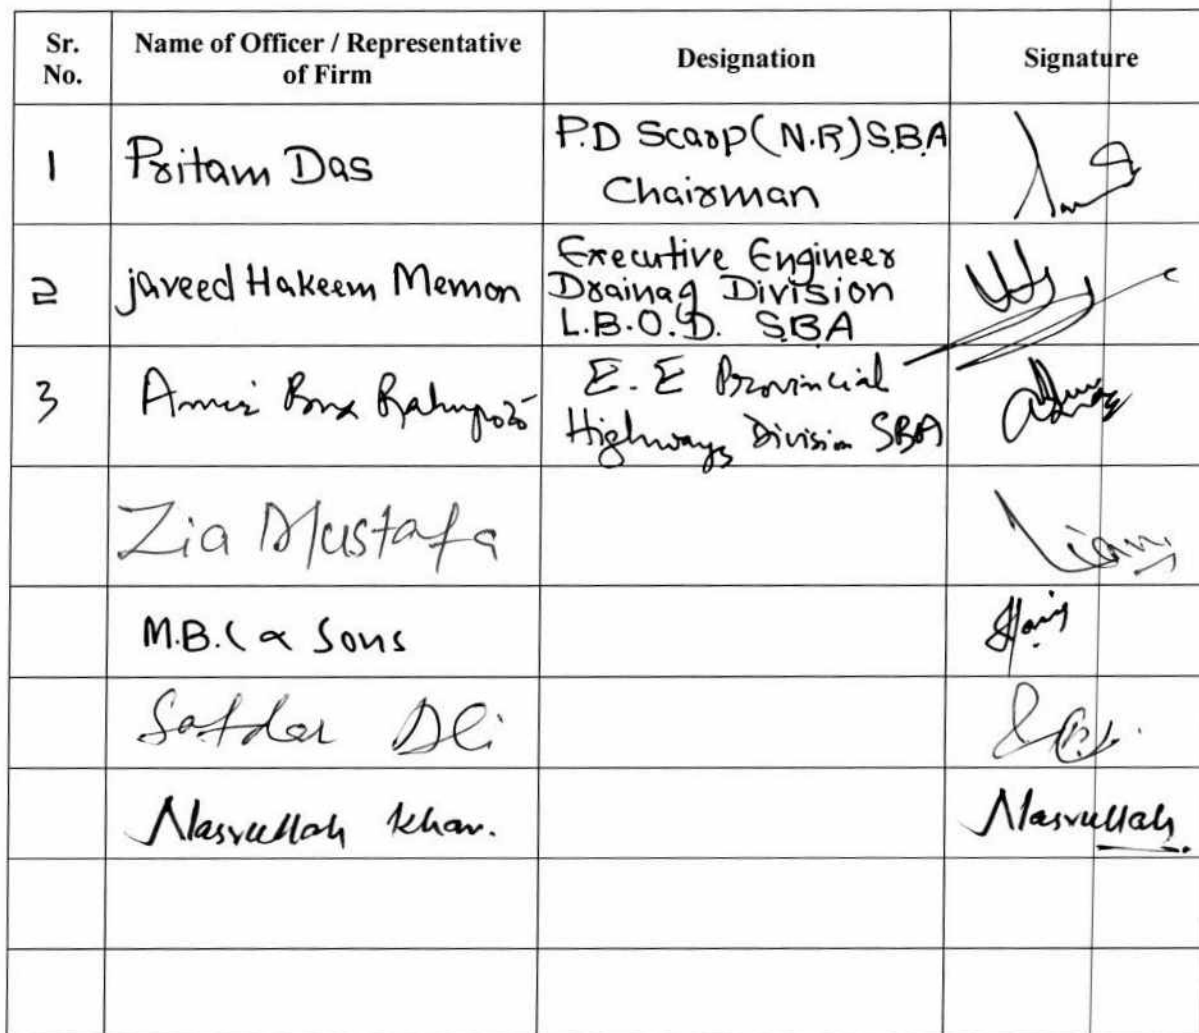 Sr. No.
Name of Officer / Representative of Firm
Designation
Signature
1
Pritam Das
P.D Scarp (N.R) S.B.A
Chairman
2
javeed Hakeem Memon
Executive Engineer
Drainag Division
L.B.O.D. SBA
3
Amir Bux
E.E Provincial
Highways Division SBA
Zia Mustafa
M.B. & Sons
Safdar Ali
Nasrullah Khan.
Nasrullah